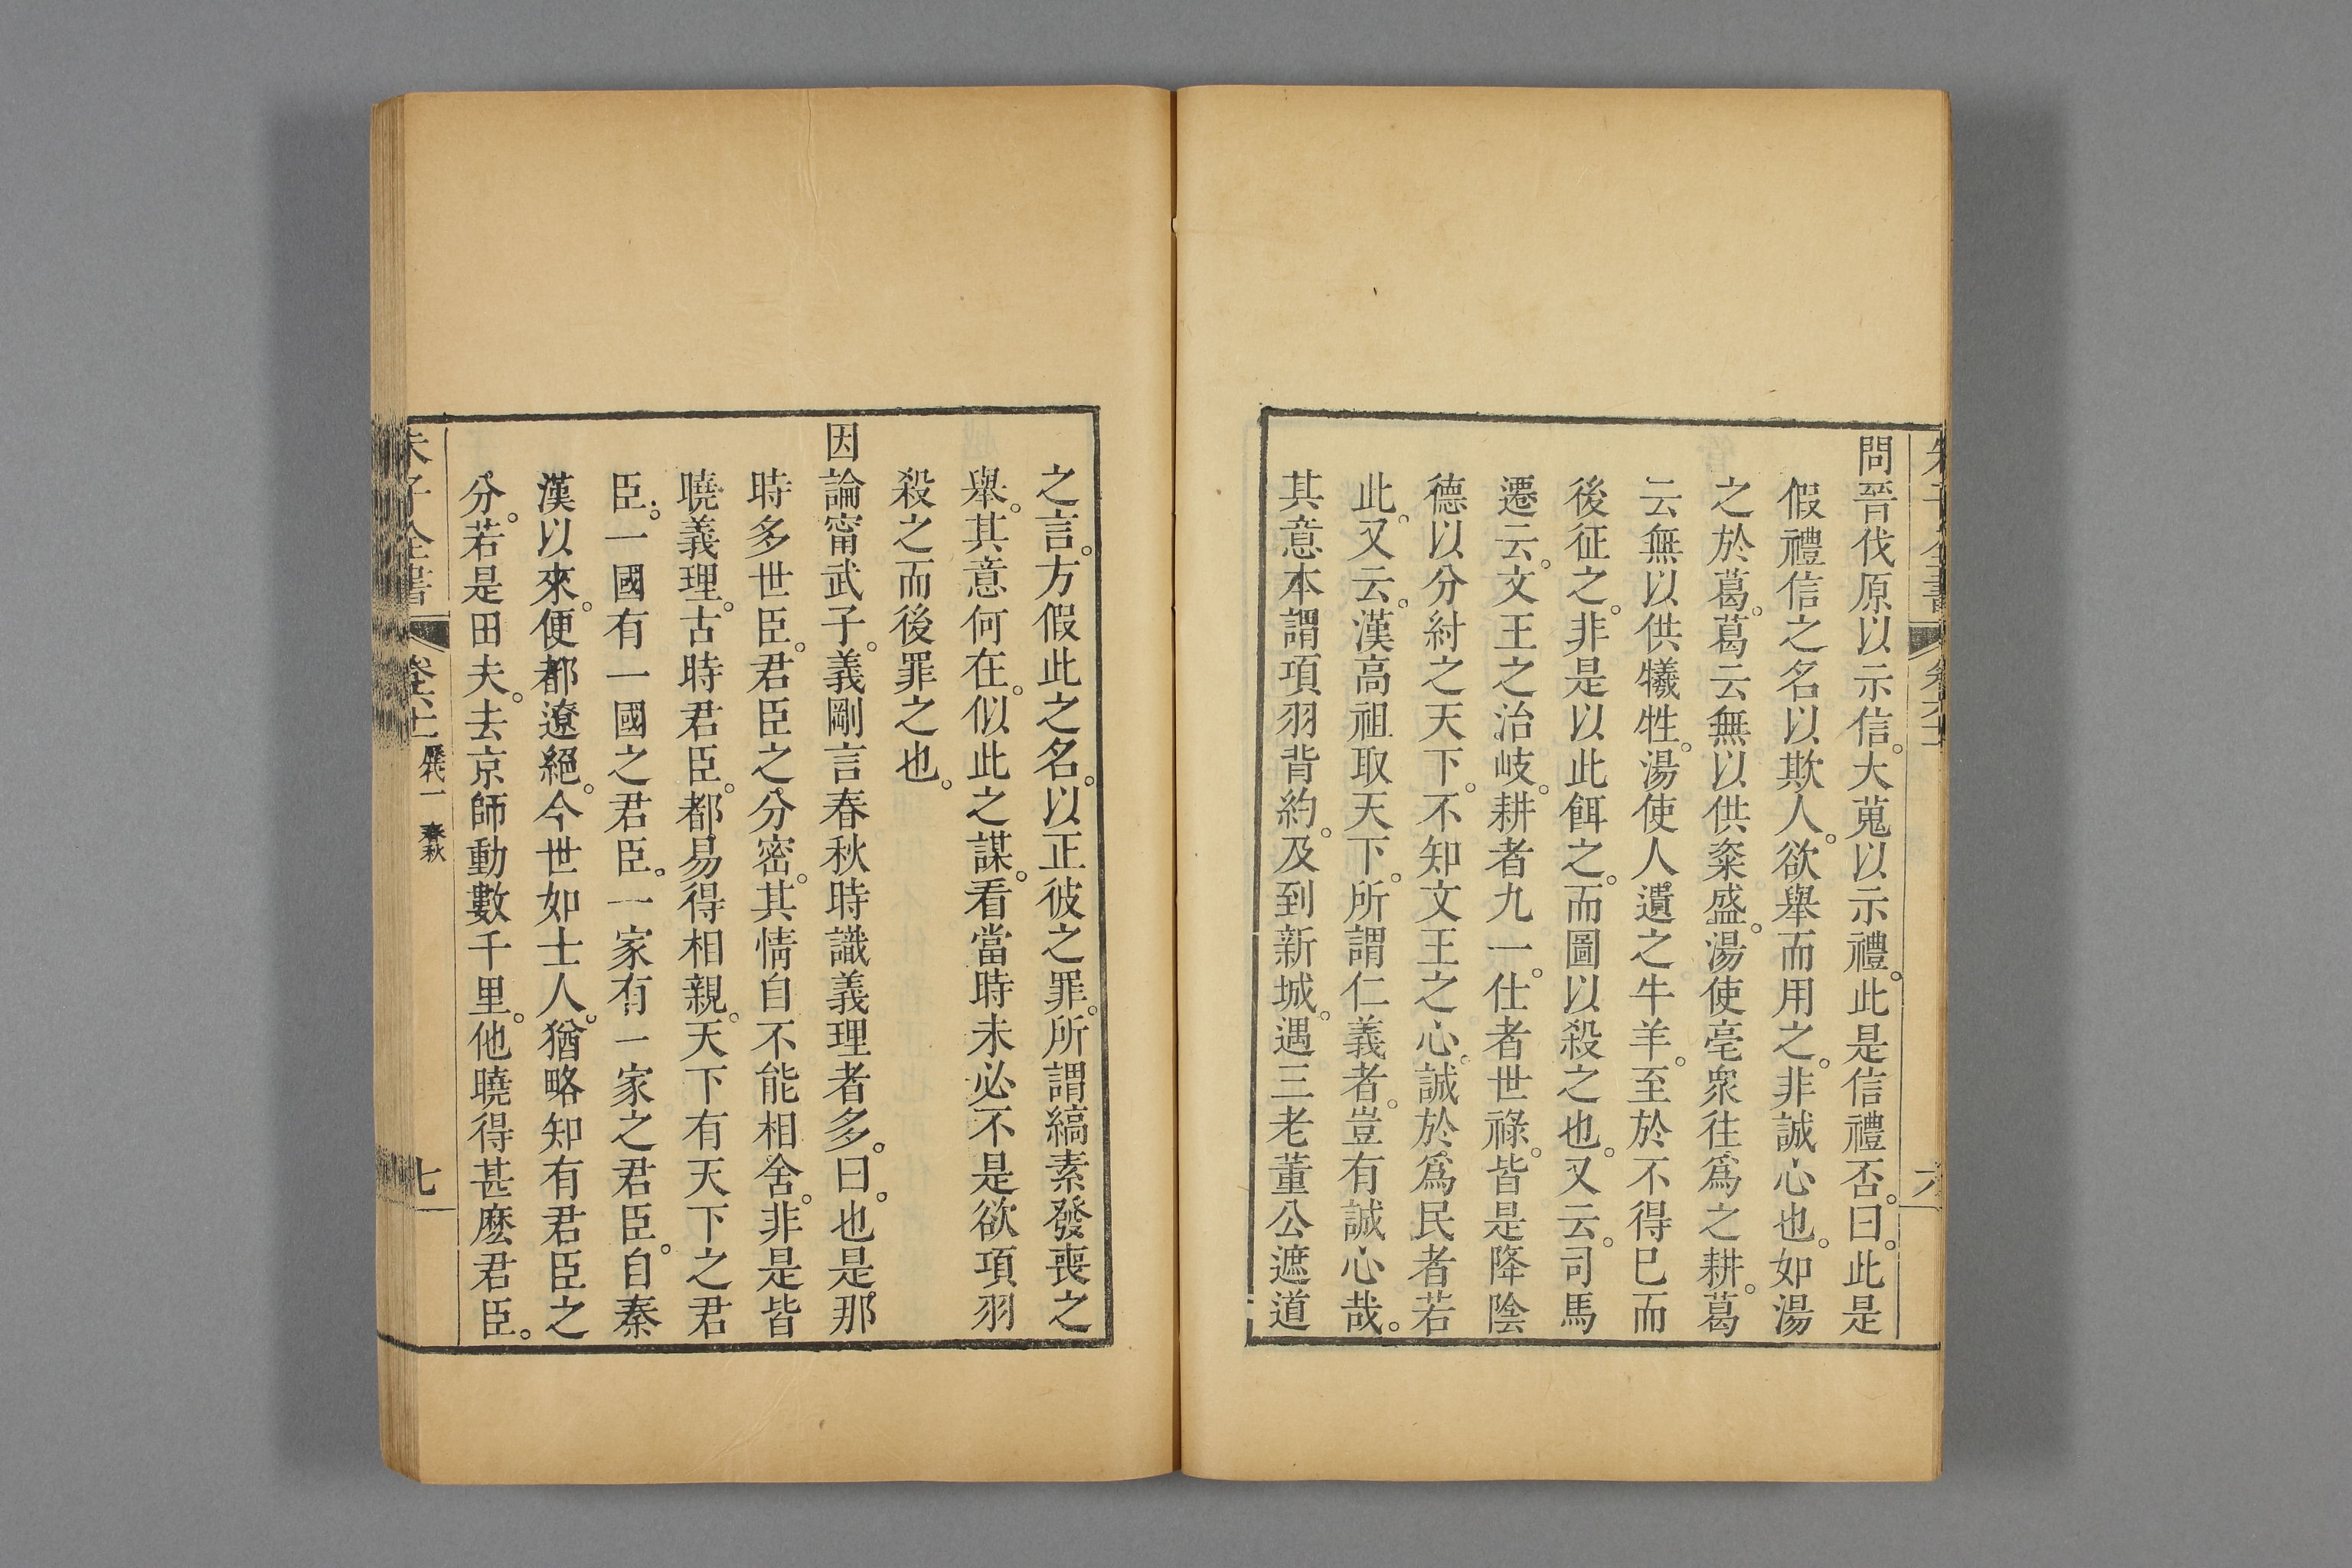 問晉伐原以示信。大蒐以示禮。此是信禮否。曰。此是
假禮信之名以欺人。欲舉而用之。非誠心也。如湯
之於葛。葛云無以供粢盛。湯使亳衆往爲之耕。葛
云無以供犧牲。湯使人遺之牛羊。至於不得巳而
後征之。非是以此餌之。而圖以殺之也。又云。司馬
遷云。文王之治岐。耕者九一。仕者世祿。皆是降陰
德以分紂之天下。不知文王之心。誠於爲民者若
此。又云。漢高祖取天下。所謂仁義者。豈有誠心哉。
其意本謂項羽背約。及到新城。遇三老董公遮道
之言。方假此之名。以正彼之罪。所謂縞素發喪之
舉。其意何在。似此之謀。看當時未必不是欲項羽
殺之而後罪之也。
因論甯武子。義剛言春秋時識義理者多。曰。也是那
時多世臣。君臣之分密。其情自不能相舍。非是皆
曉義理。古時君臣。都易得相親。天下有天下之君
臣。一國有一國之君臣。一家有一家之君臣。自秦
漢以來。便都遼絕。今世如士人。猶略知有君臣之
分。若是田夫。去京師動數千里。他曉得甚麽君臣。
朱子全書
歷代一 春秋
七